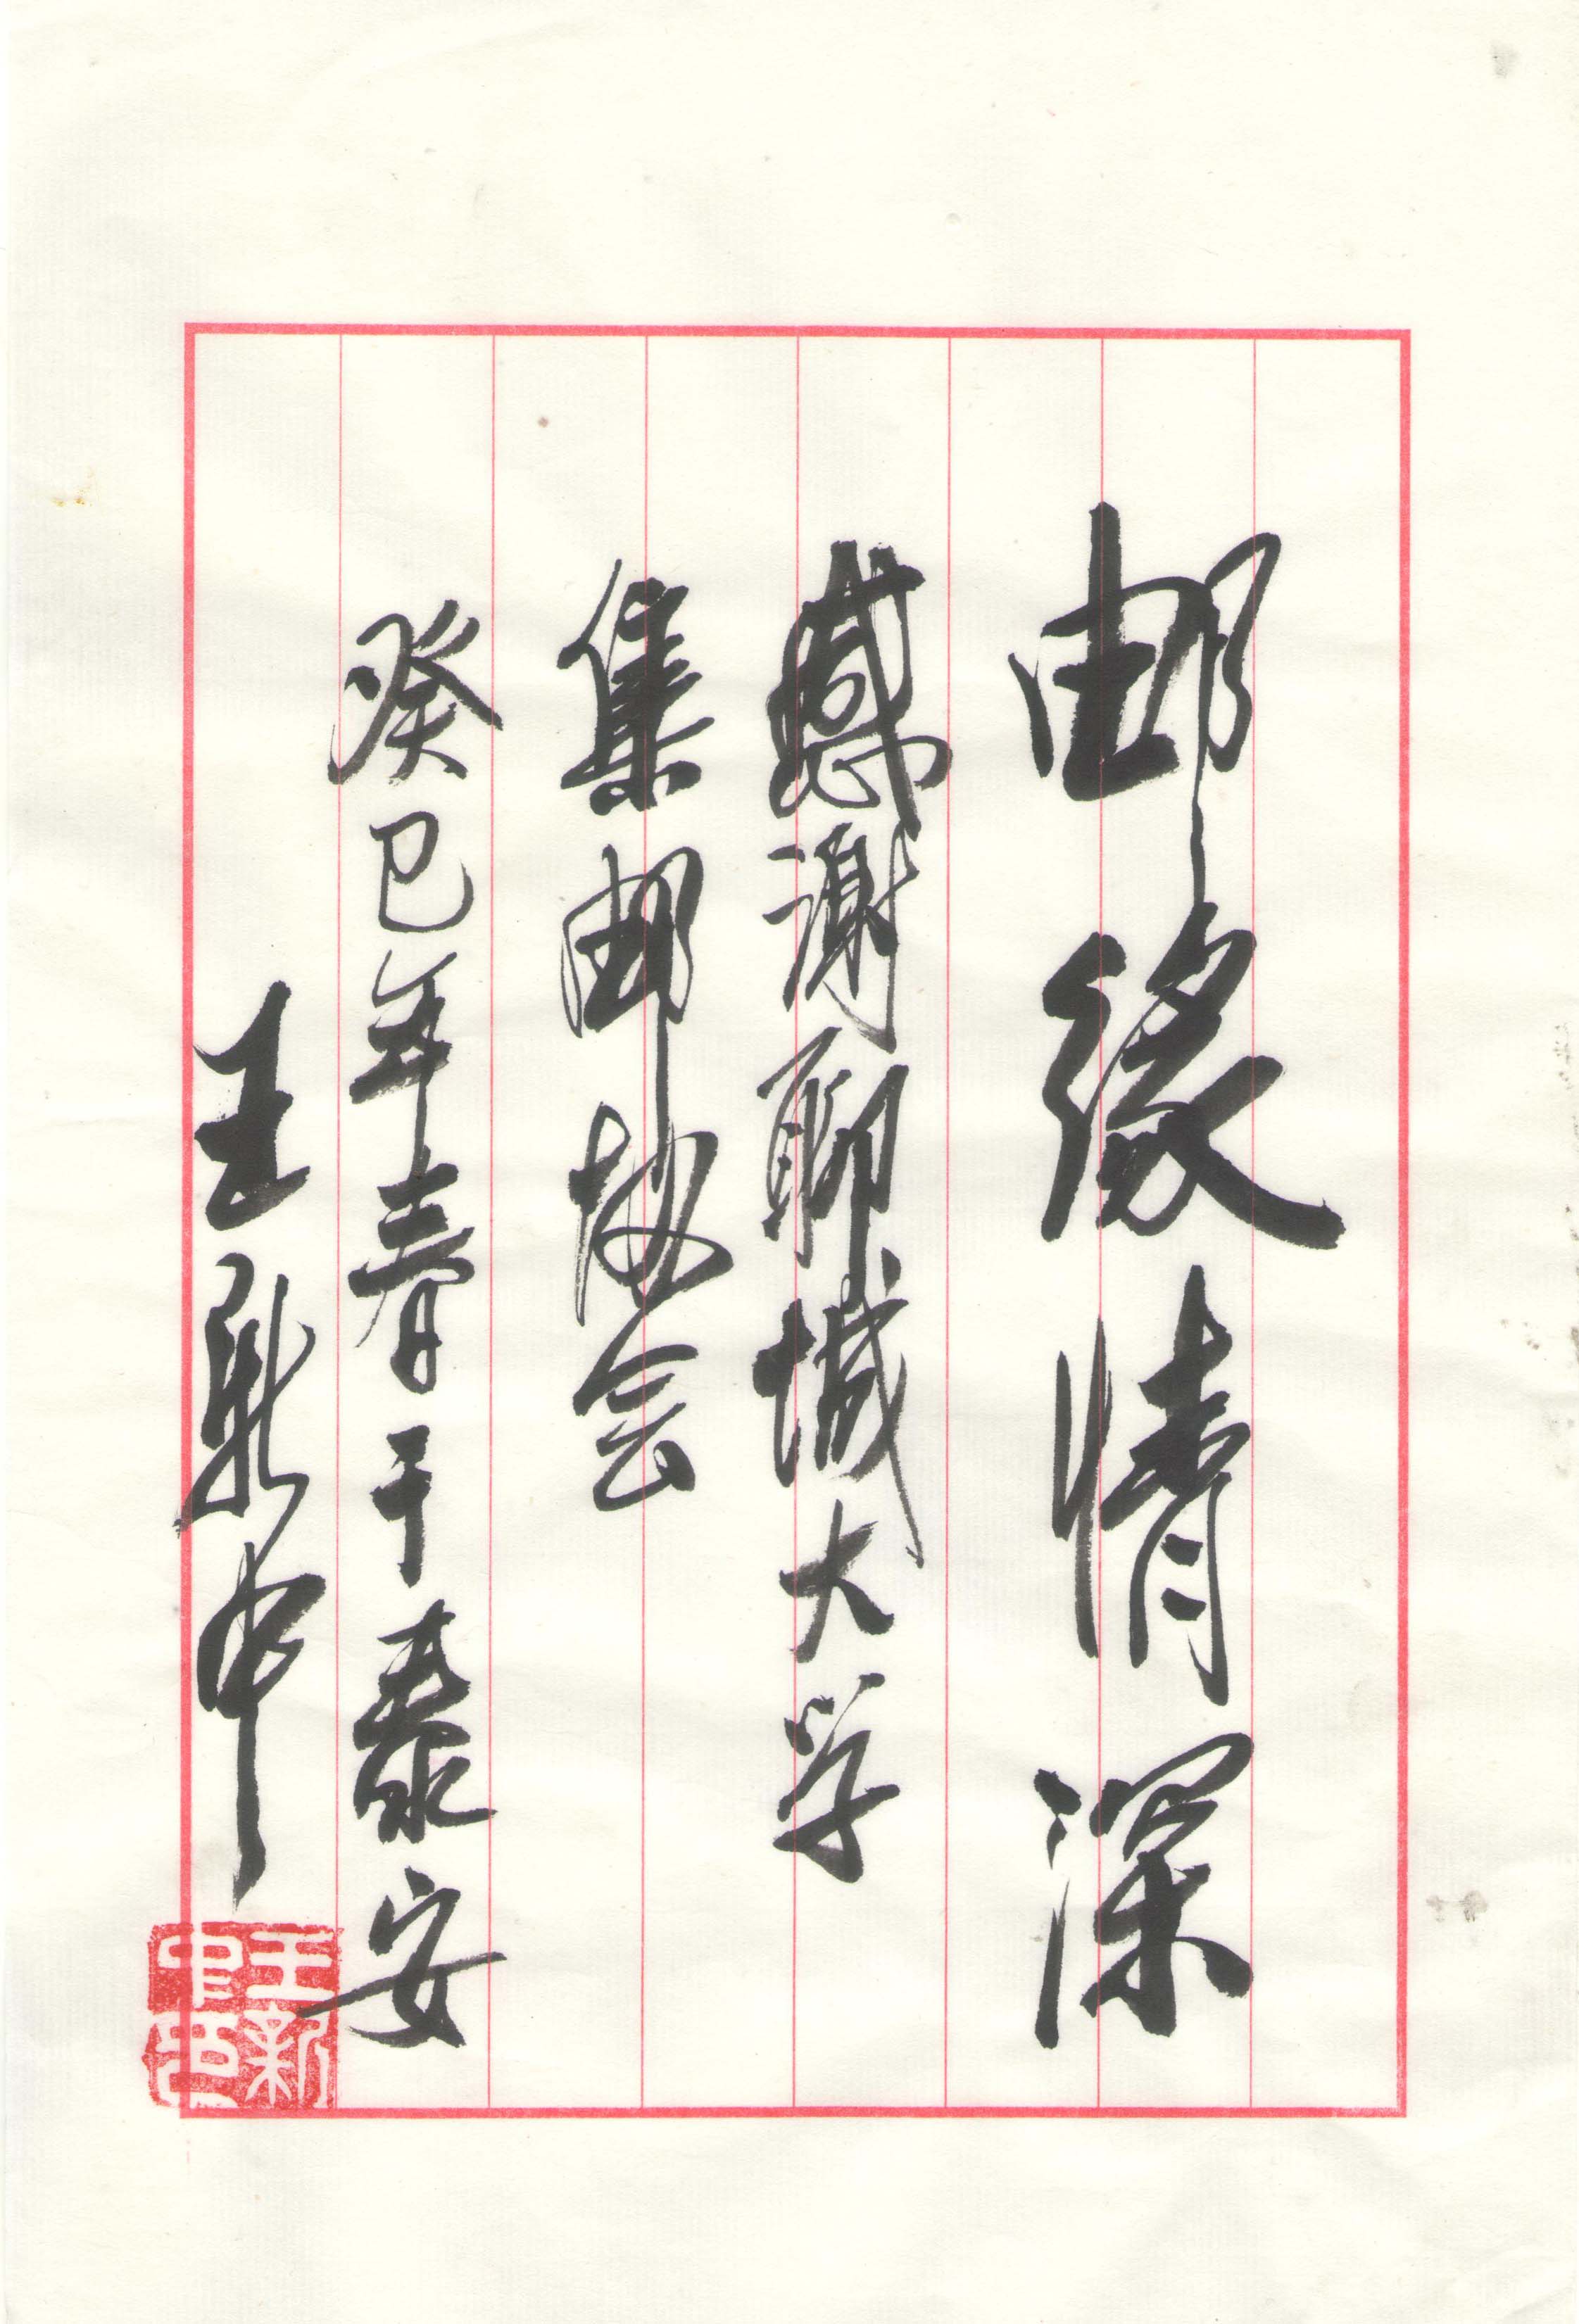 邮缘情深
感谢聊城大学
集邮协会
癸巳年春于泰安
王新中
王新中印